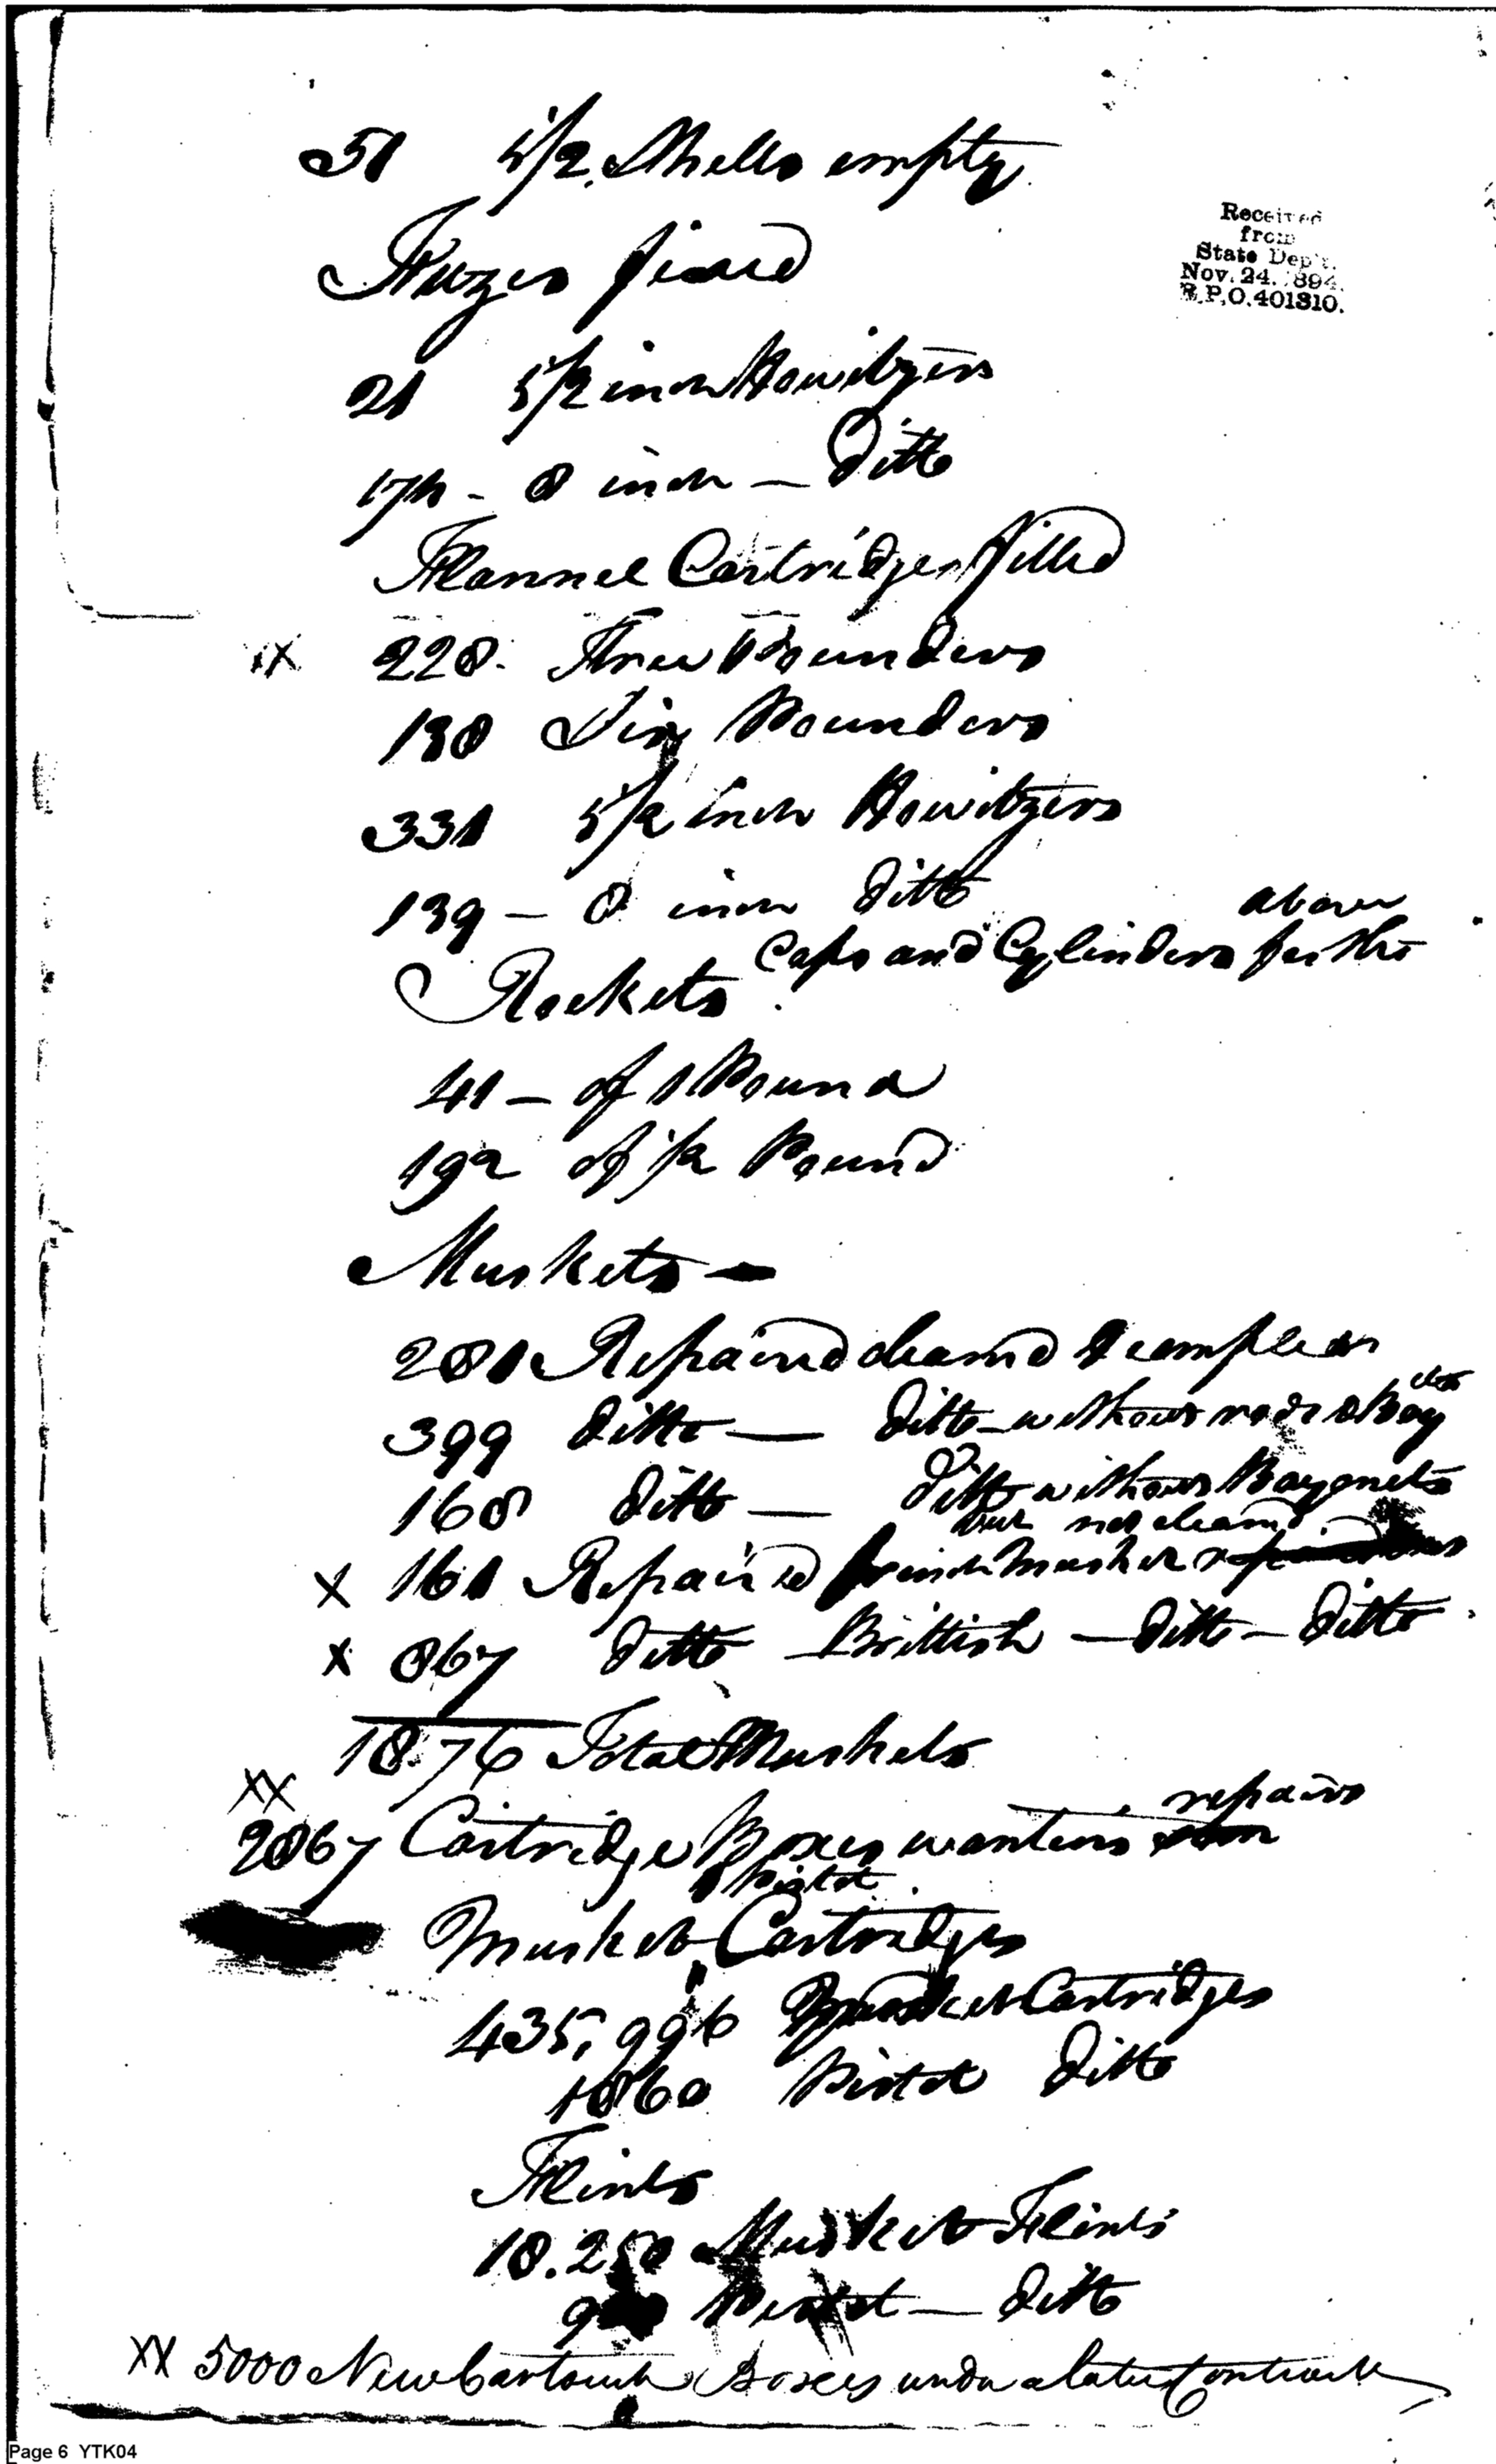 51 5 1/2 Shells empty
Fuzes fixed
21 5 1/2 inch Howitzers
174 - 8 inch — Ditto
Flannel Cartridges filled
XX 228 Three Pounders
138 Six Pounders
331 5 1/2 inch Howitzers
139 — 8 inch Ditto
Rockets Caps and Cylinders for the above
41 — of 1 Pound
192 of 1/2 Pound
Muskets —
281 Repaired cleaned & compleat
399 Ditto — Ditto without rods & Bayets
168 Ditto — Ditto without Bayonets
X 161 Repaired but not cleaned french Musket
X 867 Ditto — Brittish — Ditto — Ditto
1876 Total Muskets
XX
2867 Cartridge Boxes wanting repairs
Musket & Pistol Cartridges
435,996 Musket Cartridges
1860 Pistol Ditto
Flints
18.250 Musket Flints
Pistol — Ditto
XX 5000 New Cartouch Boxes under a late Contract
Received
from
State Dep't.
Nov. 24. 1894.
R.P.O. 401310.
Page 6 YTK04